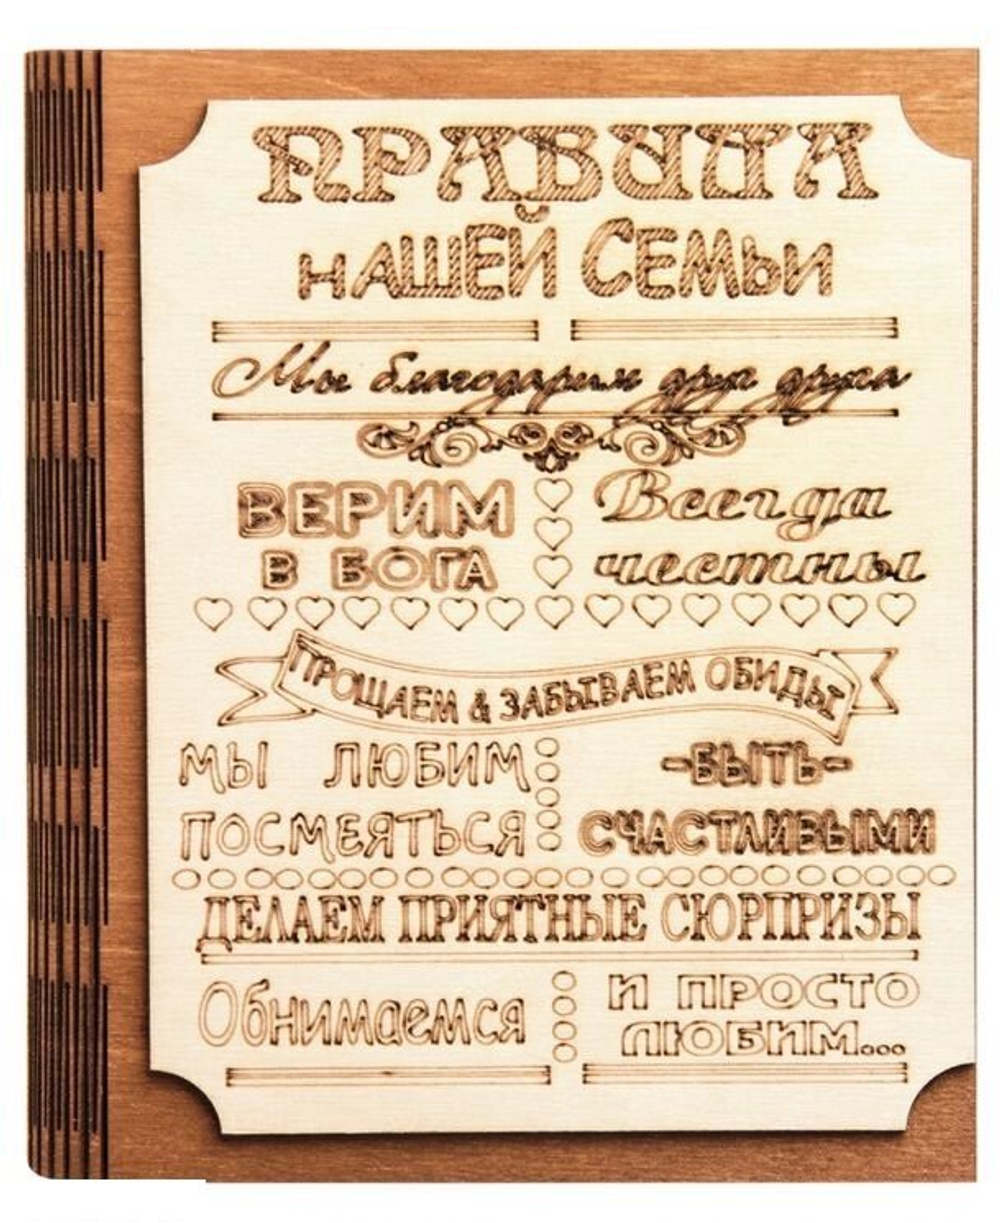 ПРАВИЛА
нАШЕЙ СЕМЬИ
Мы благодарим друг друга
ВЕРИМ
В БОГА
Всегда
честны
ПРОЩАЕМ & ЗАБЫВАЕМ ОБИДЫ
МЫ ЛЮБИМ
ПОСМЕЯТЬСЯ
-БЫТЬ-
СЧАСТЛИВЫМИ
ДЕЛАЕМ ПРИЯТНЫЕ СЮРПРИЗЫ
Обнимаемся
И ПРОСТО
ЛЮБИМ...